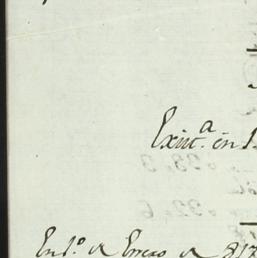 Exist.ª en 1.
En 1.º de Enero de 817